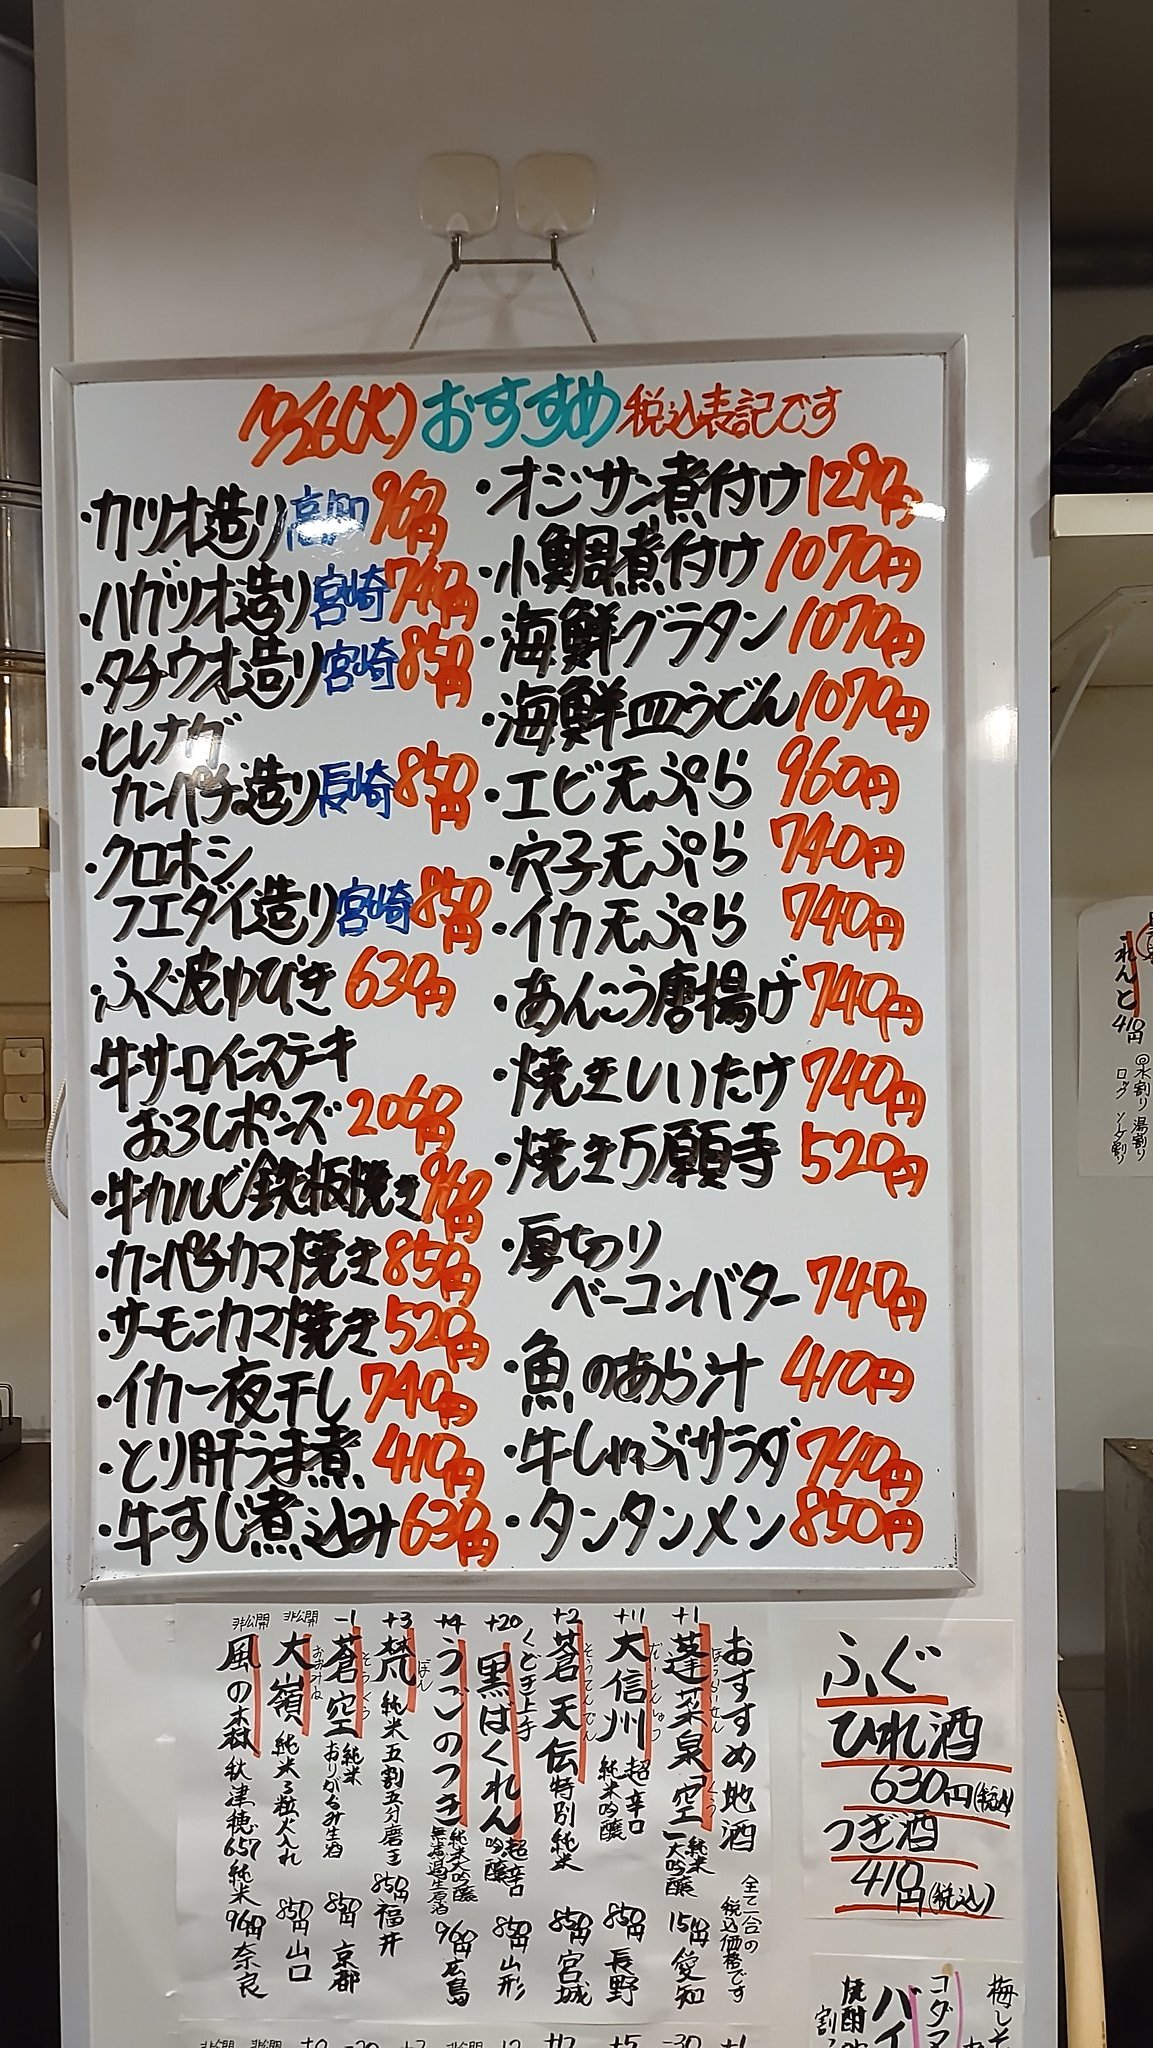 12/26(火)おすすめ税込表記です
・カツオ造り高知960円
・ハガツオ造り宮崎740円
・タチウオ造り宮崎850円
・ヒレナガ
カンパチ造り長崎850円
・クロホシ
フエダイ造り宮崎850円
・ふぐ皮ゆびき630円
・牛サーロインステーキ
おろしポンズ2060円
・牛カルビ鉄板焼き960円
・カンパチカマ焼き850円
・サーモンカマ焼き520円
・イカ一夜干し740円
・とり肝うま煮410円
・牛すじ煮込み630円
・オジサン煮付け1290円
・小鯛煮付け1070円
・海鮮グラタン1070円
・海鮮皿うどん1070円
・エビ天ぷら960円
・穴子天ぷら740円
・イカ天ぷら740円
・あんこう唐揚げ740円
・焼きしいたけ740円
・焼き万願寺520円
・厚切り
ベーコンバター740円
・魚のあら汁410円
・牛しゃぶサラダ740円
・タンタンメン850円
おすすめ地酒 全て一合の税込価格です
+1 蓬莱泉「空」純米大吟醸 愛知
+11 大信州 超辛口純米吟醸 850円 長野
+2 蒼天伝 特別純米 850円 宮城
+20 くどき上手 黒ばくれん 超辛口吟醸 850円 山形
+4 うごのつき 純米大吟醸無濾過生原酒 960円 広島
+3 梵 純米五割五分磨き 850円 福井
-1 蒼空 純米おりがらみ生酒 850円 京都
非公開 大嶺 純米3粒火入れ 850円 山口
非公開 風の森 秋津穂657純米 960円 奈良
ふぐ
ひれ酒
630円(税込)
つぎ酒
410円(税込)
れんと
410円
水割り 湯割り
ロック ソーダ割り
梅しそ
コダマ
バイ
焼酎
割